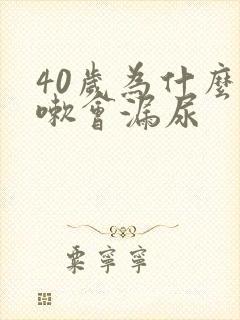 40歲為什麼
嗽會漏尿
粟寧寧